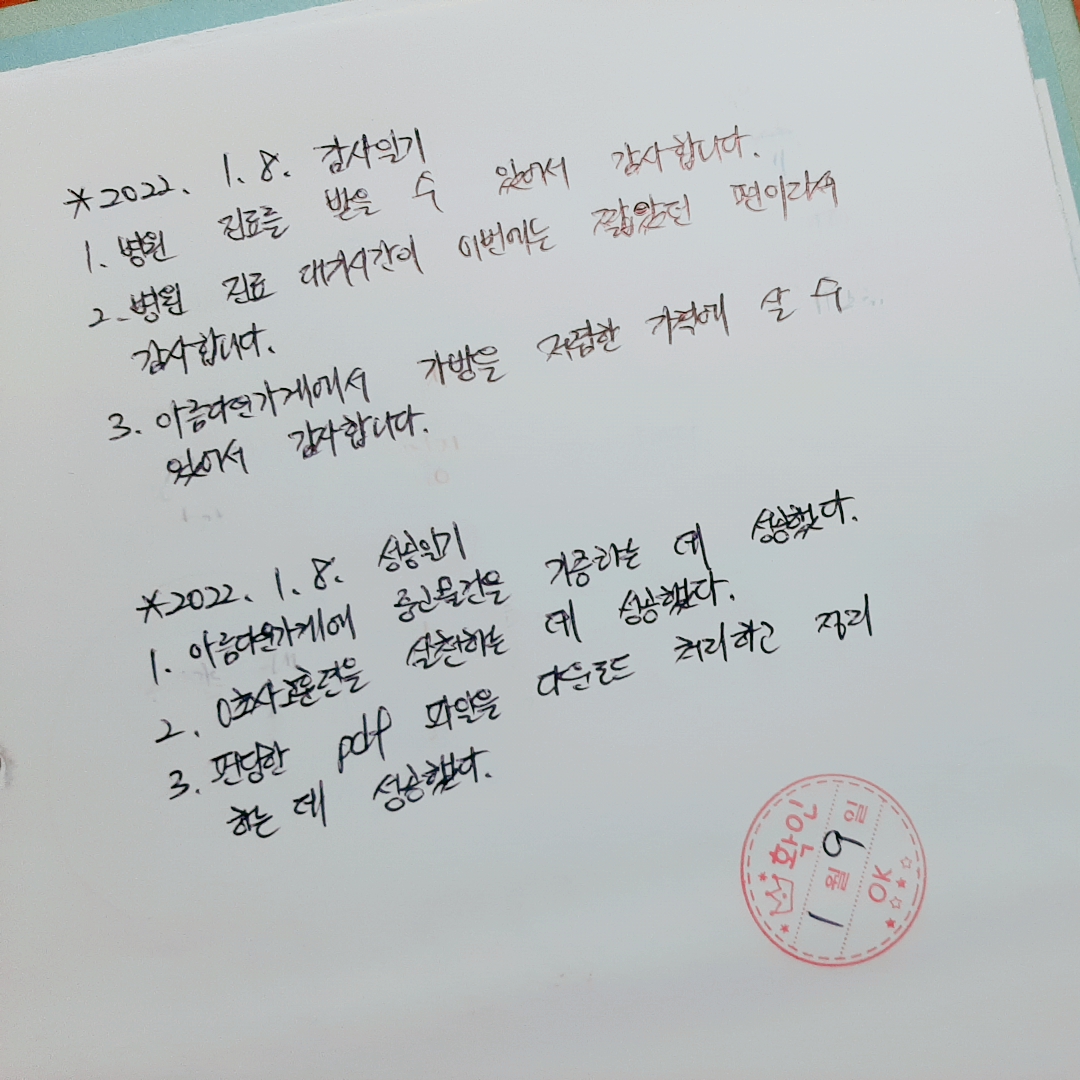 *2022. 1. 8. 감사일기
1. 병원 진료를 받을 수 있어서 감사합니다.
2. 병원 진료 대기시간이 이번에는 짧았던 편이라서
감사합니다.
3. 아름다운가게에서 가방을 저렴한 가격에 살 수
있어서 감사합니다.
*2022. 1. 8. 성공일기
1. 아름다운가게에 중고물건을 기증하는 데 성공했다.
2. 0초사고훈련을 실천하는 데 성공했다.
3. pdf 파일을 다운로드 처리하고 정리
하는 데 성공했다.
확인
1월 9일
OK